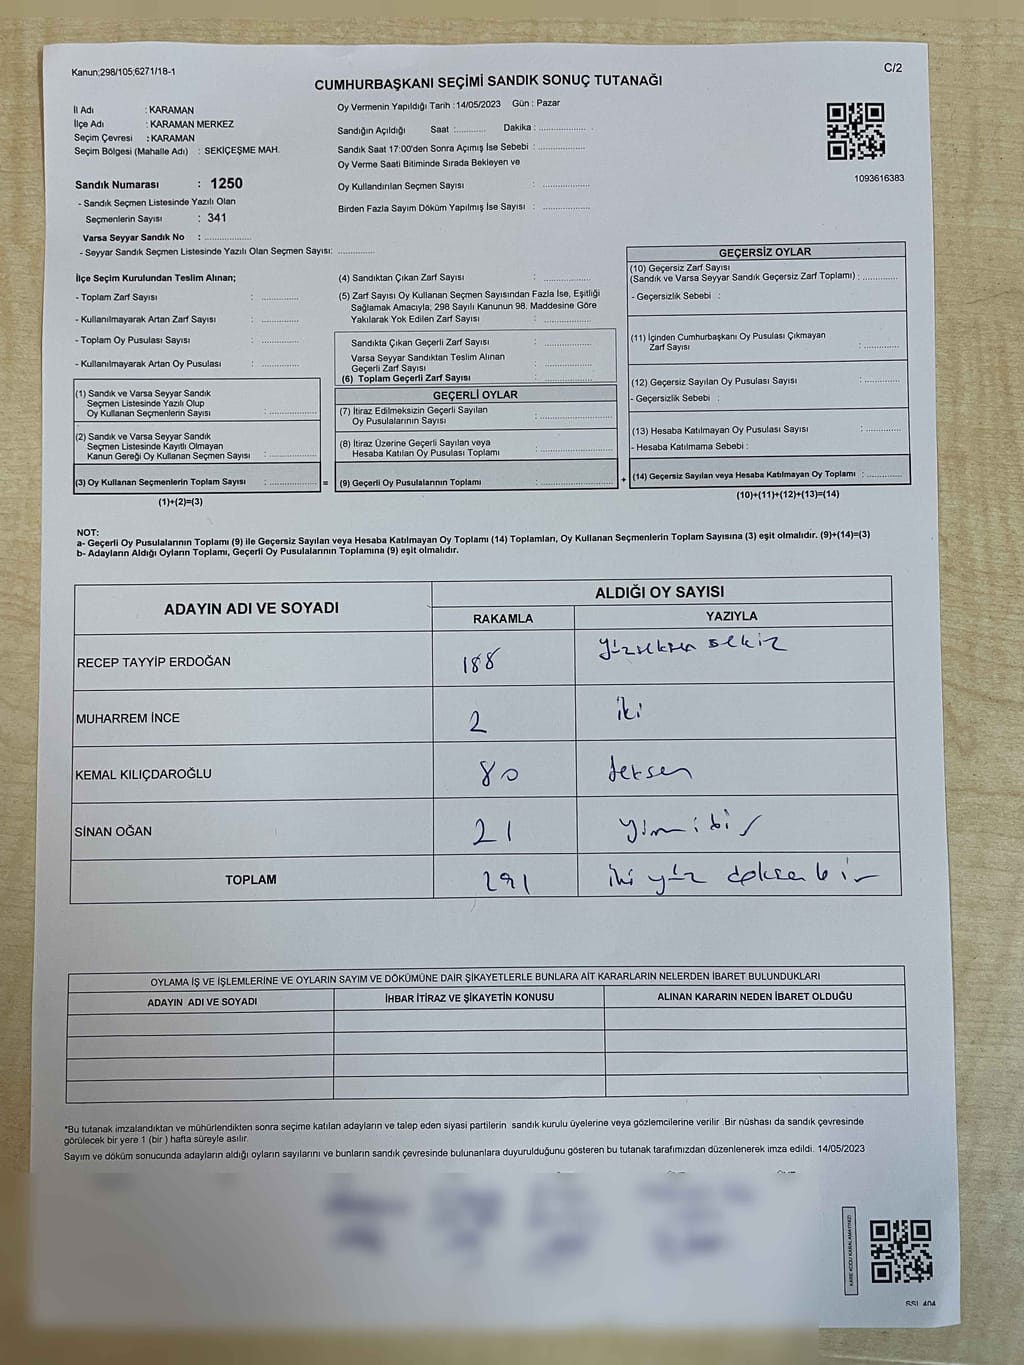 Kanun;298/105;6271/18-1
C/2
CUMHURBAŞKANI SEÇİMİ SANDIK SONUÇ TUTANAĞI
İl Adı : KARAMAN
İlçe Adı : KARAMAN MERKEZ
Seçim Çevresi : KARAMAN
Seçim Bölgesi (Mahalle Adı) : SEKİÇEŞME MAH.
Oy Vermenin Yapıldığı Tarih :14/05/2023 Gün : Pazar
Sandığın Açıldığı Saat :........... Dakika : ..................
Sandık Saat 17:00'den Sonra Açımış İse Sebebi : ..................
Oy Verme Saati Bitiminde Sırada Bekleyen ve
Oy Kullandırılan Seçmen Sayısı : ..................
Birden Fazla Sayım Döküm Yapılmış İse Sayısı : ..................
1093616383
Sandık Numarası : 1250
- Sandık Seçmen Listesinde Yazılı Olan
Seçmenlerin Sayısı : 341
Varsa Seyyar Sandık No : ..................
- Seyyar Sandık Seçmen Listesinde Yazılı Olan Seçmen Sayısı: ..............
İlçe Seçim Kurulundan Teslim Alınan;
- Toplam Zarf Sayısı : ..............
- Kullanılmayarak Artan Zarf Sayısı : ..............
- Toplam Oy Pusulası Sayısı : ..............
- Kullanılmayarak Artan Oy Pusulası : ..............
(1) Sandık ve Varsa Seyyar Sandık
Seçmen Listesinde Yazılı Olup
Oy Kullanan Seçmenlerin Sayısı : ..................
(2) Sandık ve Varsa Seyyar Sandık
Seçmen Listesinde Kayıtlı Olmayan
Kanun Gereği Oy Kullanan Seçmen Sayısı : ..................
(3) Oy Kullanan Seçmenlerin Toplam Sayısı : .................. =
(1)+(2)=(3)
(4) Sandıktan Çıkan Zarf Sayısı : ..................
(5) Zarf Sayısı Oy Kullanan Seçmen Sayısından Fazla İse, Eşitliği
Sağlamak Amacıyla; 298 Sayılı Kanunun 98. Maddesine Göre
Yakılarak Yok Edilen Zarf Sayısı : ..................
Sandıkta Çıkan Geçerli Zarf Sayısı : ..................
Varsa Seyyar Sandıktan Teslim Alınan
Geçerli Zarf Sayısı : ..................
(6) Toplam Geçerli Zarf Sayısı : ..................
GEÇERLİ OYLAR
(7) İtiraz Edilmeksizin Geçerli Sayılan
Oy Pusulalarının Sayısı : ..................
(8) İtiraz Üzerine Geçerli Sayılan veya
Hesaba Katılan Oy Pusulası Toplamı : ..................
(9) Geçerli Oy Pusulalarının Toplamı : .................. +
GEÇERSİZ OYLAR
(10) Geçersiz Zarf Sayısı
(Sandık ve Varsa Seyyar Sandık Geçersiz Zarf Toplamı) : .............
- Geçersizlik Sebebi :
(11) İçinden Cumhurbaşkanı Oy Pusulası Çıkmayan
Zarf Sayısı : .............
(12) Geçersiz Sayılan Oy Pusulası Sayısı : .............
- Geçersizlik Sebebi :
(13) Hesaba Katılmayan Oy Pusulası Sayısı : .............
- Hesaba Katılmama Sebebi :
(14) Geçersiz Sayılan veya Hesaba Katılmayan Oy Toplamı : .............
(10)+(11)+(12)+(13)=(14)
NOT:
a- Geçerli Oy Pusulalarının Toplamı (9) ile Geçersiz Sayılan veya Hesaba Katılmayan Oy Toplamı (14) Toplamları, Oy Kullanan Seçmenlerin Toplam Sayısına (3) eşit olmalıdır. (9)+(14)=(3)
b- Adayların Aldığı Oyların Toplamı, Geçerli Oy Pusulalarının Toplamına (9) eşit olmalıdır.
ADAYIN ADI VE SOYADI
ALDIĞI OY SAYISI
RAKAMLA YAZIYLA
RECEP TAYYİP ERDOĞAN 188 yüzseksen sekiz
MUHARREM İNCE 2 iki
KEMAL KILIÇDAROĞLU 80 seksen
SİNAN OĞAN 21 yirmi bir
TOPLAM 291 iki yüz doksan bir
OYLAMA İŞ VE İŞLEMLERİNE VE OYLARIN SAYIM VE DÖKÜMÜNE DAİR ŞİKAYETLERLE BUNLARA AİT KARARLARIN NELERDEN İBARET BULUNDUKLARI
ADAYIN ADI VE SOYADI İHBAR İTİRAZ VE ŞİKAYETİN KONUSU ALINAN KARARIN NEDEN İBARET OLDUĞU
*Bu tutanak imzalandıktan ve mühürlendikten sonra seçime katılan adayların ve talep eden siyasi partilerin sandık kurulu üyelerine veya gözlemcilerine verilir. Bir nüshası da sandık çevresinde
görülecek bir yere 1 (bir ) hafta süreyle asılır.
Sayım ve döküm sonucunda adayların aldığı oyların sayılarını ve bunların sandık çevresinde bulunanlara duyurulduğunu gösteren bu tutanak tarafımızdan düzenlenerek imza edildi. 14/05/2023
KARE KODU KARALAMAYINIZ!